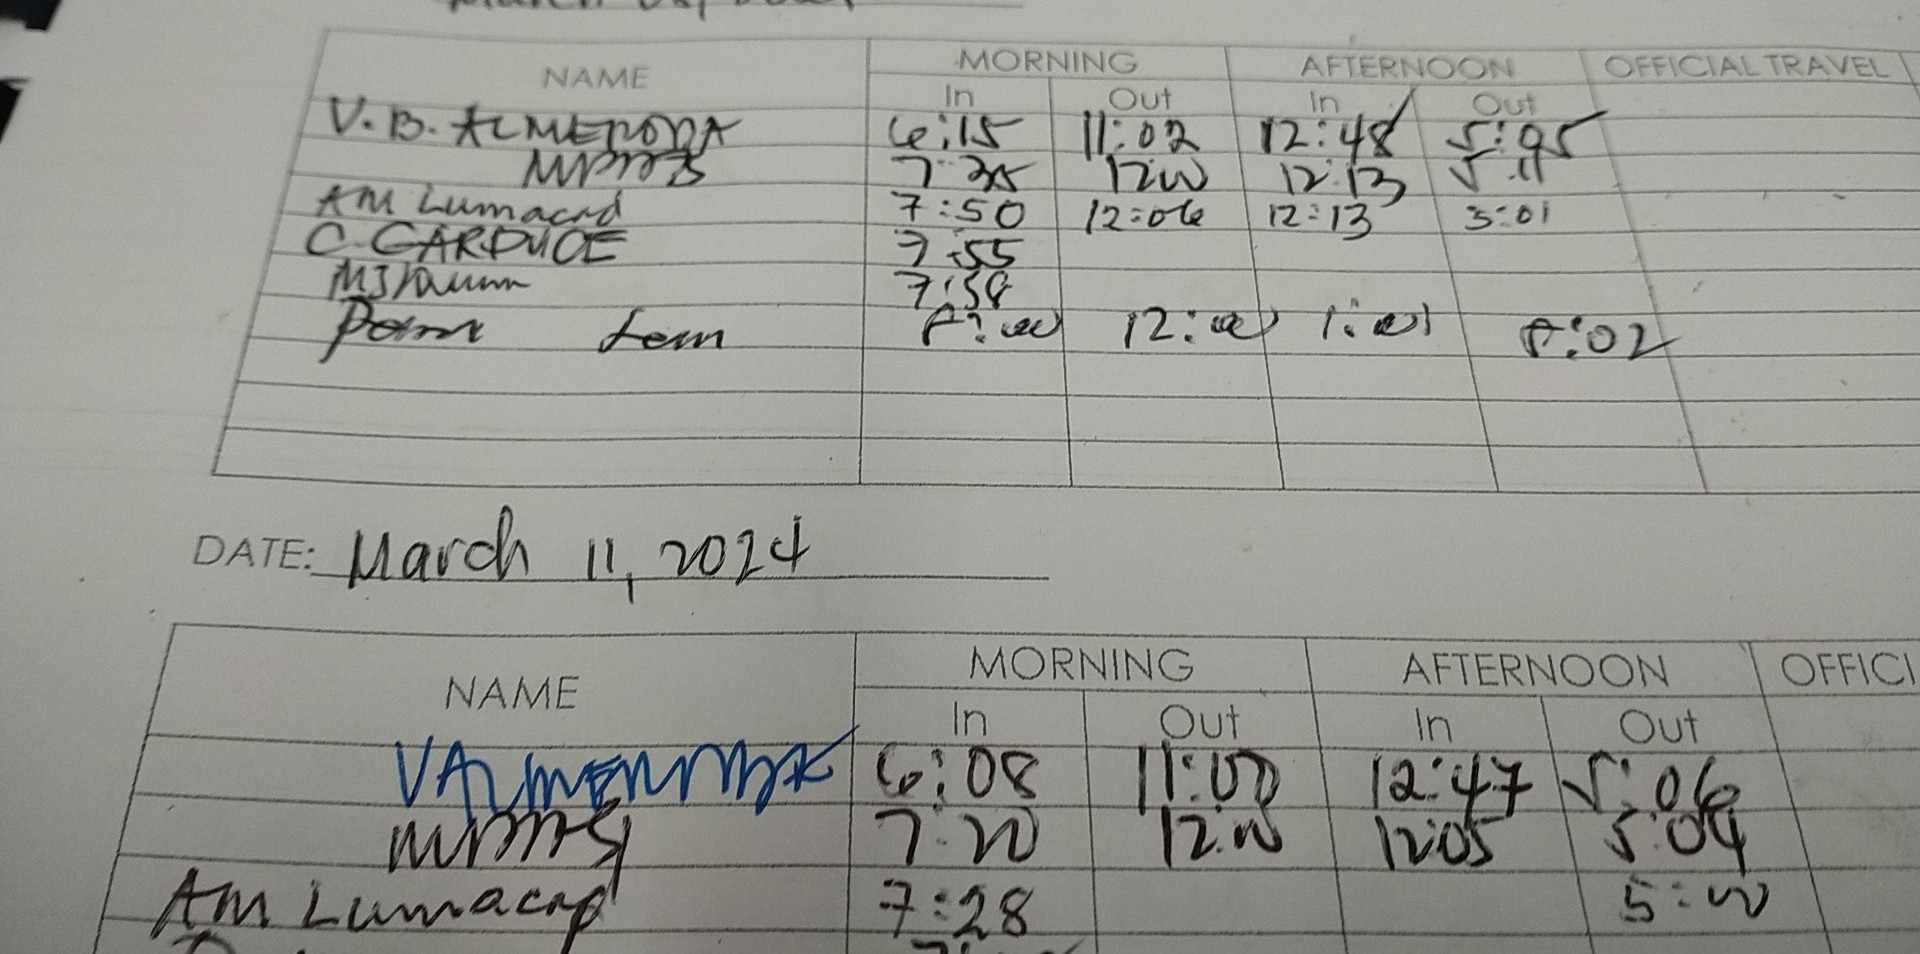 NAME MORNING AFTERNOON OFFICIAL TRAVEL
In Out In Out
V.B. ALMENODA 6:15 11:02 12:48 5:05
7:35 12:00 12:13 5:11
AM Lumacad 7:50 12:06 12:13 5:01
C. GARDUCE 7:55
7:58
8:00 12:00 1:01 5:02
DATE: March 11, 2024
NAME MORNING AFTERNOON OFFICI
In Out In Out
6:08 11:00 12:47 5:06
7:20 12:00 12:05 5:04
AM Lumacad 7:28 5:00